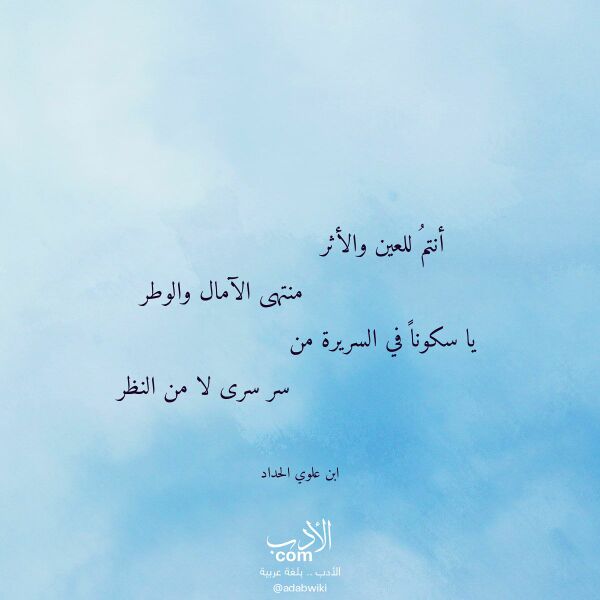 أنتمُ للعين والأثر
منتهى الآمال والوطر
يا سكوناً في السريرة من
سر سرى لا من النظر
ابن علوي الحداد
الأدب
com
الأدب .. بلغة عربية
@adabwiki